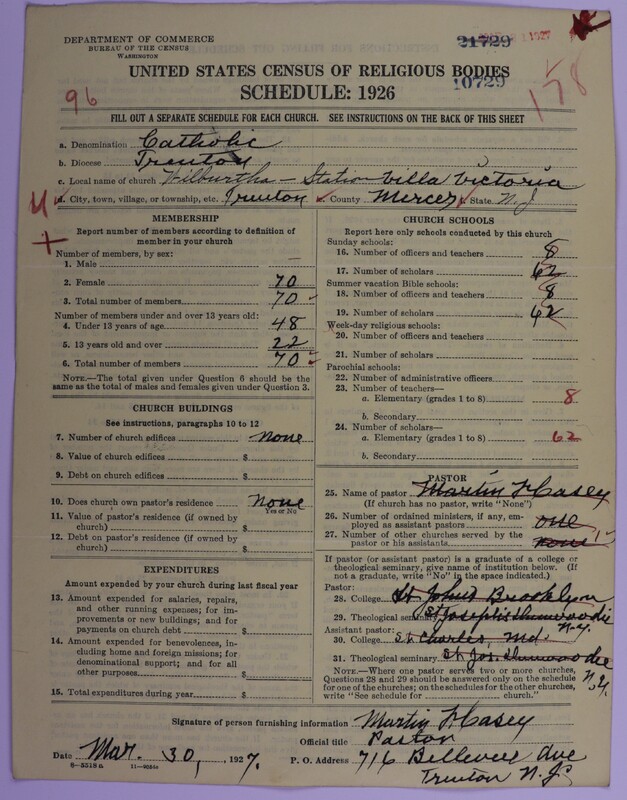 DEPARTMENT OF COMMERCE
BUREAU OF THE CENSUS
WASHINGTON
21729
1927
UNITED STATES CENSUS OF RELIGIOUS BODIES
SCHEDULE: 1926
10729
96
178
FILL OUT A SEPARATE SCHEDULE FOR EACH CHURCH. SEE INSTRUCTIONS ON THE BACK OF THIS SHEET
a. Denomination Catholic
b. Diocese Trenton
c. Local name of church Wilburtha - Station Villa Victoria
d. City, town, village, or township, etc. Trenton e. County Mercer f. State N.J.
MEMBERSHIP
Report number of members according to definition of member in your church
Number of members, by sex:
1. Male —
2. Female 70
3. Total number of members 70
Number of members under and over 13 years old:
4. Under 13 years of age 48
5. 13 years old and over 22
6. Total number of members 70
NOTE.—The total given under Question 6 should be the same as the total of males and females given under Question 3.
CHURCH BUILDINGS
See instructions, paragraphs 10 to 12
7. Number of church edifices none
8. Value of church edifices $
9. Debt on church edifices $
10. Does church own pastor's residence None
Yes or No
11. Value of pastor's residence (if owned by church) $
12. Debt on pastor's residence (if owned by church) $
EXPENDITURES
Amount expended by your church during last fiscal year
13. Amount expended for salaries, repairs, and other running expenses; for improvements or new buildings; and for payments on church debt $
14. Amount expended for benevolences, including home and foreign missions; for denominational support; and for all other purposes $
15. Total expenditures during year $
CHURCH SCHOOLS
Report here only schools conducted by this church
Sunday schools:
16. Number of officers and teachers 8
17. Number of scholars 62
Summer vacation Bible schools:
18. Number of officers and teachers 8
19. Number of scholars 62
Week-day religious schools:
20. Number of officers and teachers
21. Number of scholars
Parochial schools:
22. Number of administrative officers
23. Number of teachers—
a. Elementary (grades 1 to 8) 8
b. Secondary
24. Number of scholars—
a. Elementary (grades 1 to 8) 62
b. Secondary
PASTOR
25. Name of pastor Martin F. Casey
(If church has no pastor, write "None")
26. Number of ordained ministers, if any, employed as assistant pastors one
27. Number of other churches served by the pastor or his assistants none 1
If pastor (or assistant pastor) is a graduate of a college or theological seminary, give name of institution below. (If not a graduate, write "No" in the space indicated.)
Pastor:
28. College St John's Brooklyn
29. Theological seminary St Joseph's Dunwoodie N.Y.
Assistant pastor:
30. College St. Charles, Md.
31. Theological seminary St. Jos. Dunwoodie N.Y.
NOTE.—Where one pastor serves two or more churches, Questions 28 and 29 should be answered only on the schedule for one of the churches; on the schedules for the other churches, write "See schedule for church."
Signature of person furnishing information Martin F. Casey
Official title Pastor
Date Mar. 30, , 1927.
P. O. Address 716 Bellevue Ave
Trenton N.J.
8—5518a